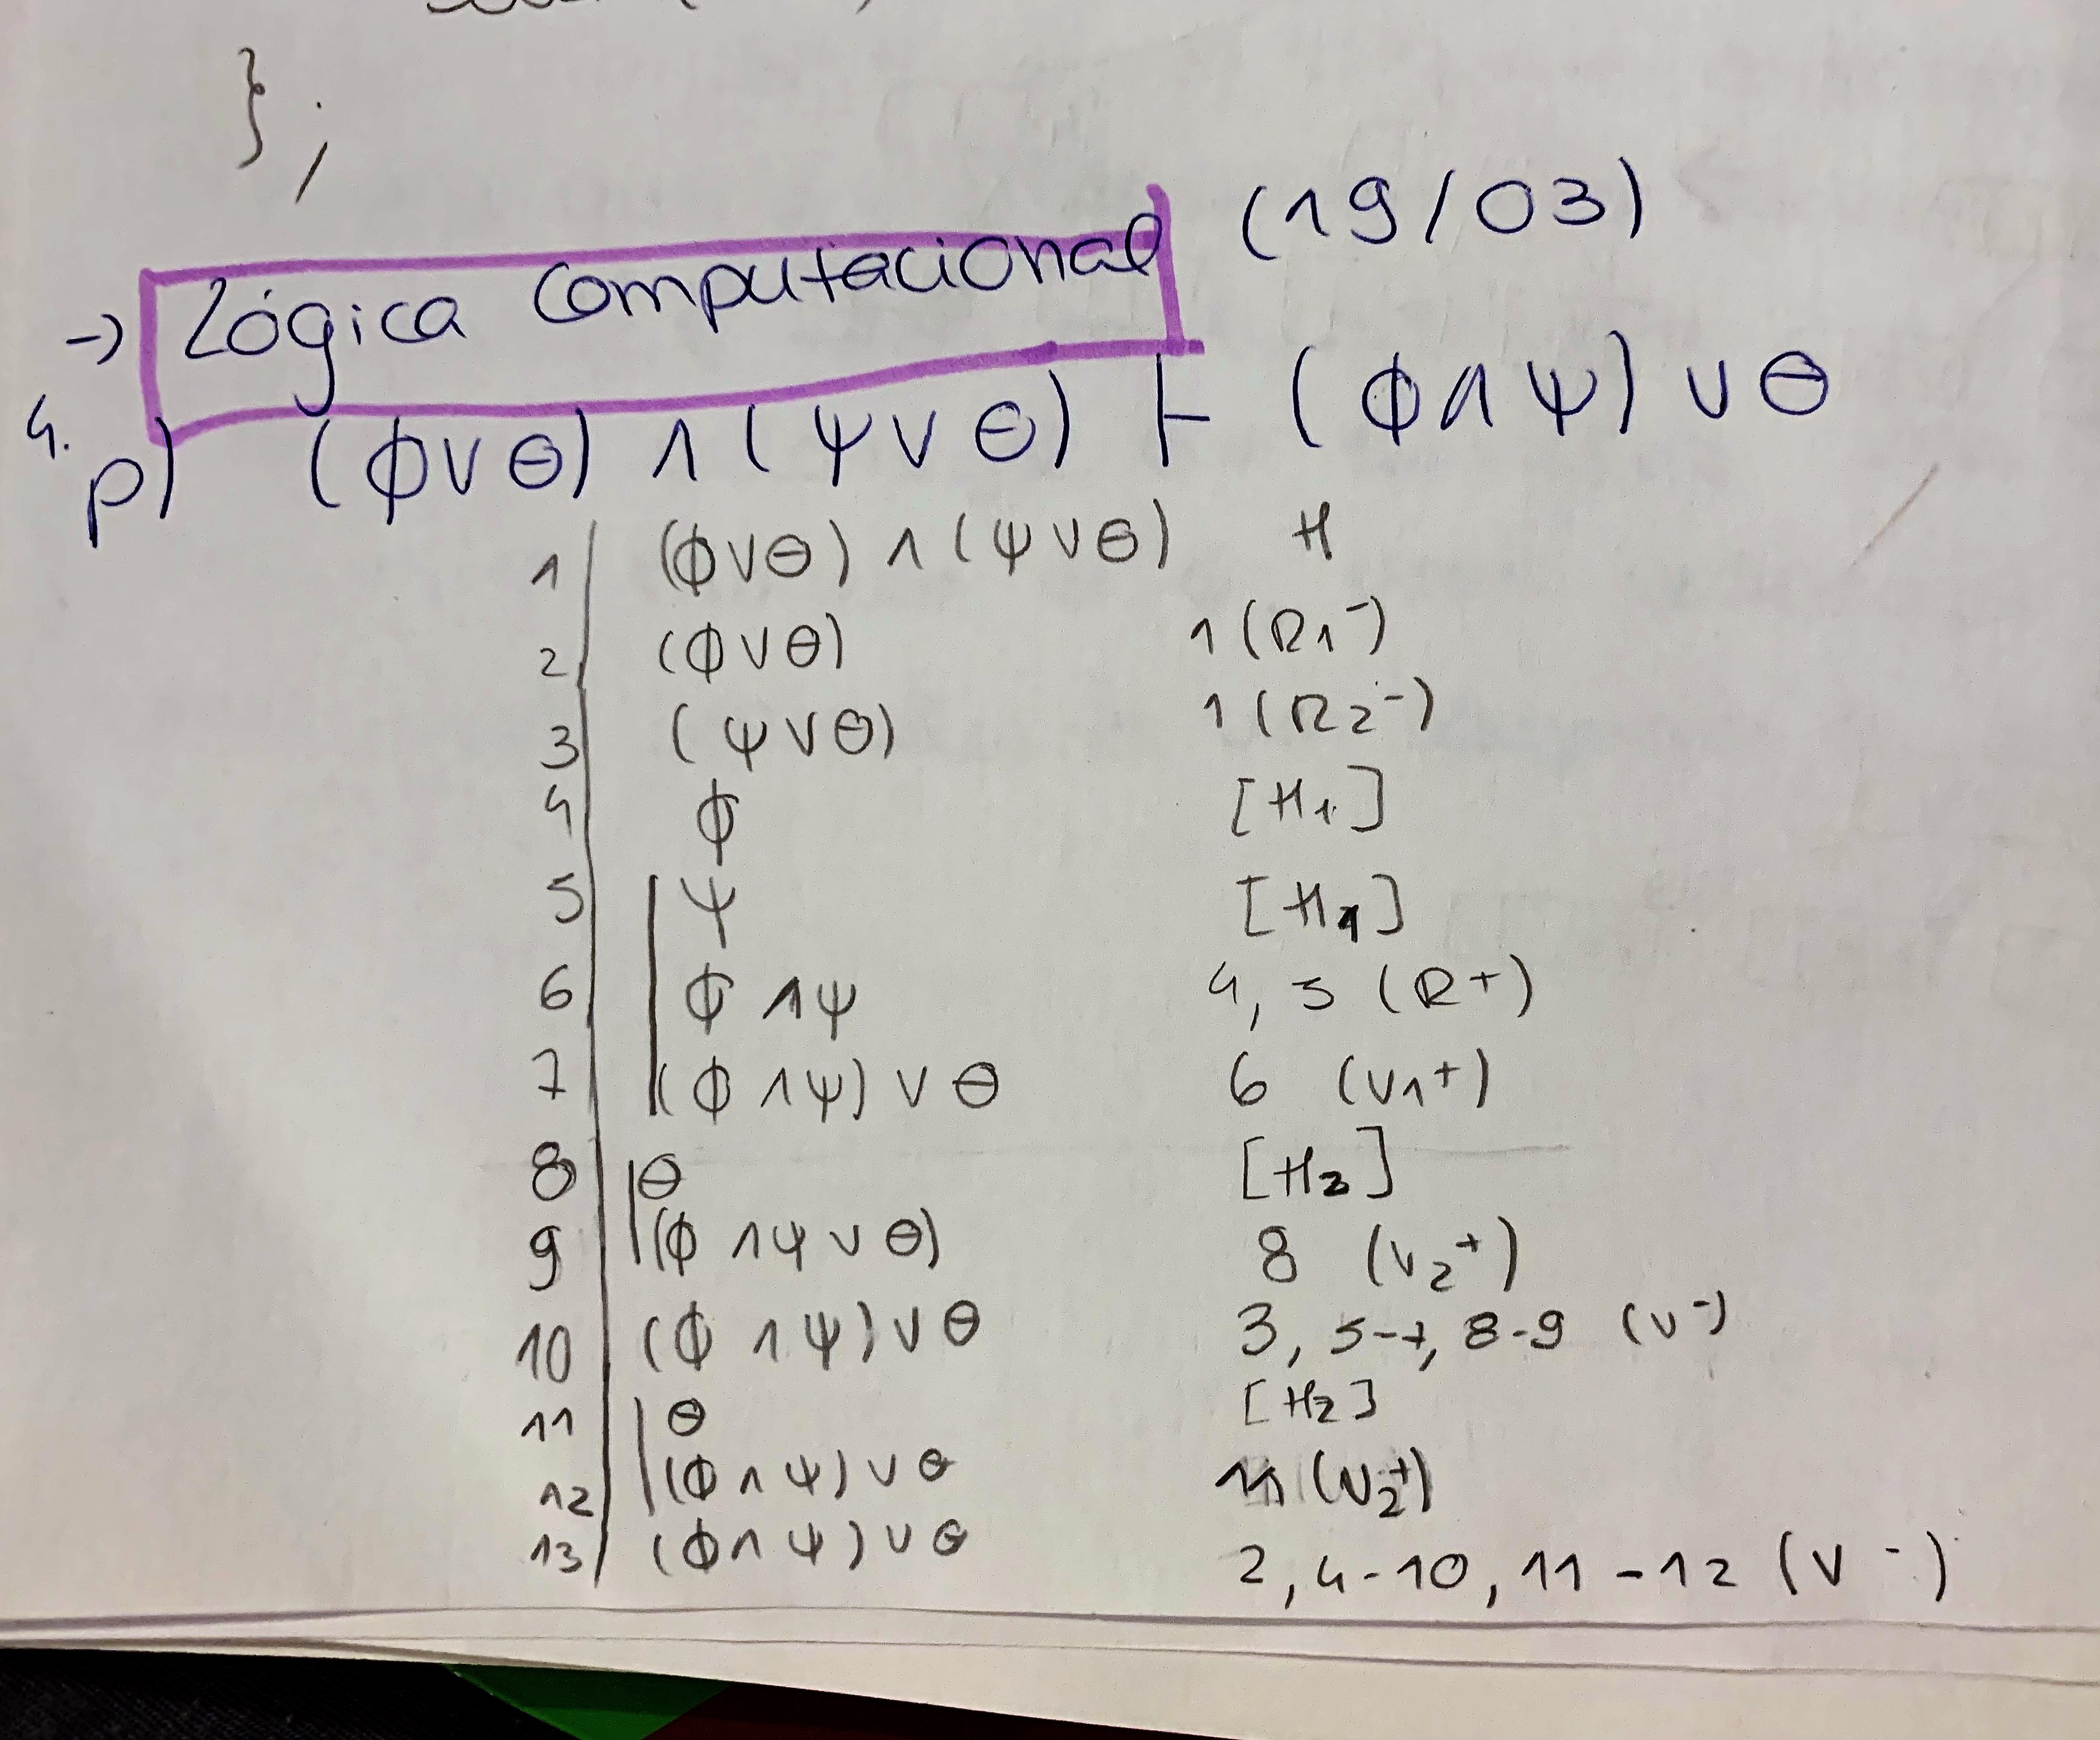 };
→ Lógica computacional (19/03)
4.
p) (ϕ∨θ) ∧ (ψ∨θ) ⊢ (ϕ∧ψ) ∨ θ
1 (ϕ∨θ) ∧ (ψ∨θ) H
2 (ϕ∨θ) 1 (R1⁻)
3 (ψ∨θ) 1 (R2⁻)
4 ϕ [H₁]
5 ψ [H₁]
6 ϕ∧ψ 4, 5 (R+)
7 (ϕ∧ψ) ∨ θ 6 (∨1+)
8 θ [H₂]
9 (ϕ∧ψ∨θ) 8 (∨₂⁺)
10 (ϕ∧ψ) ∨ θ 3, 5-7, 8-9 (∨⁻)
11 θ [H₂]
12 (ϕ∧ψ) ∨ θ 11 (∨₂⁺)
13 (ϕ∧ψ) ∨ θ 2, 4-10, 11-12 (∨⁻)